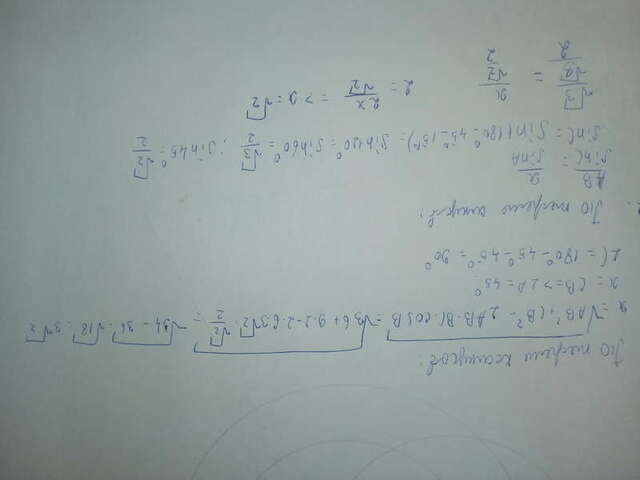 По теореме косинусов:
x = √AB² + CB² - 2AB·BC·cosB = √36 + 9·2 - 2·6·3√2·√2/2 = √54 - 36 = √18 = 3√2
x = CB => ∠A = 45°
∠C = 180° - 45° - 45° = 90°
По теореме синусов:
AB/sinC = x/sinA
sinC = sin(180° - 45° - 15°) = sin120° = sin60° = √3/2 ; sin45° = √2/2
√3/√3/2 = x/√2/2
2 = 2x/√2 => x = √2